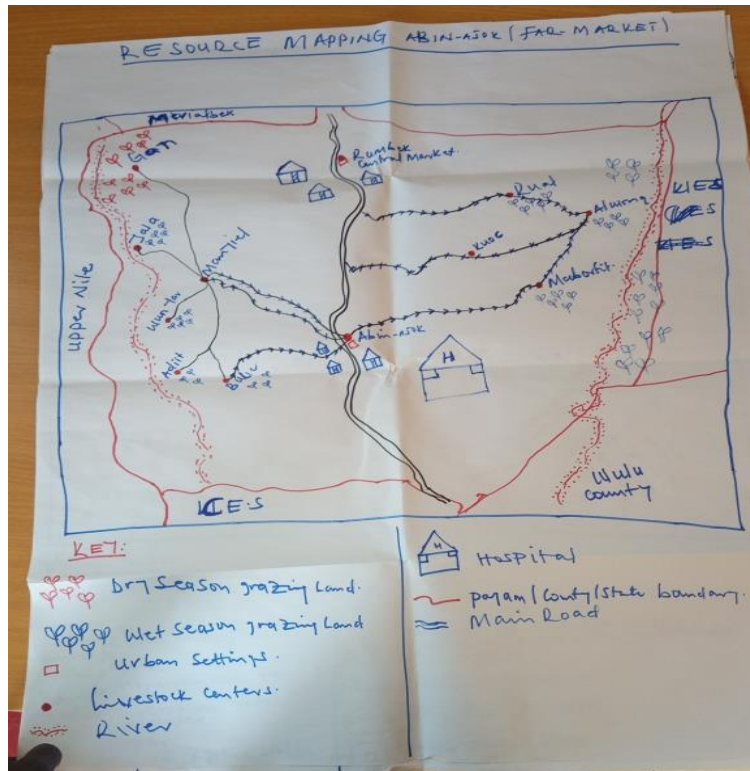 RESOURCE MAPPING ABIN-AJOK (FAR-MARKET)
Meriatbek
Gan
Rumbek
Central Market.
H
H
Rual
Aluung
KIE-S
KIE-S
Kuoc
Mantiel
Mabortit
Upper Nile
Wun-tar
Abin-ajok
H
H
H
H
Adiit
Wulu
County
KE-S
KEY:
Dry Season grazing Land.
Wet Season grazing Land
Urban Settings.
Livestock Centers.
River
H
Hospital
payam/County/State boundary.
Main Road